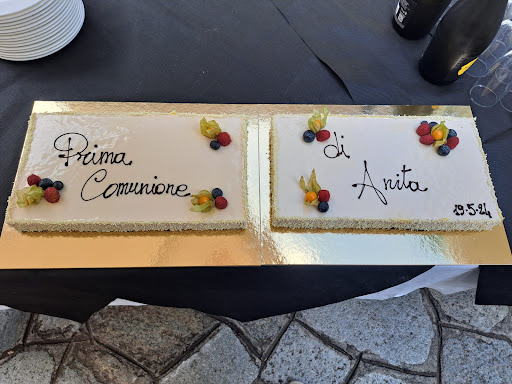 Prima
Comunione
di
Anita
19-5-24